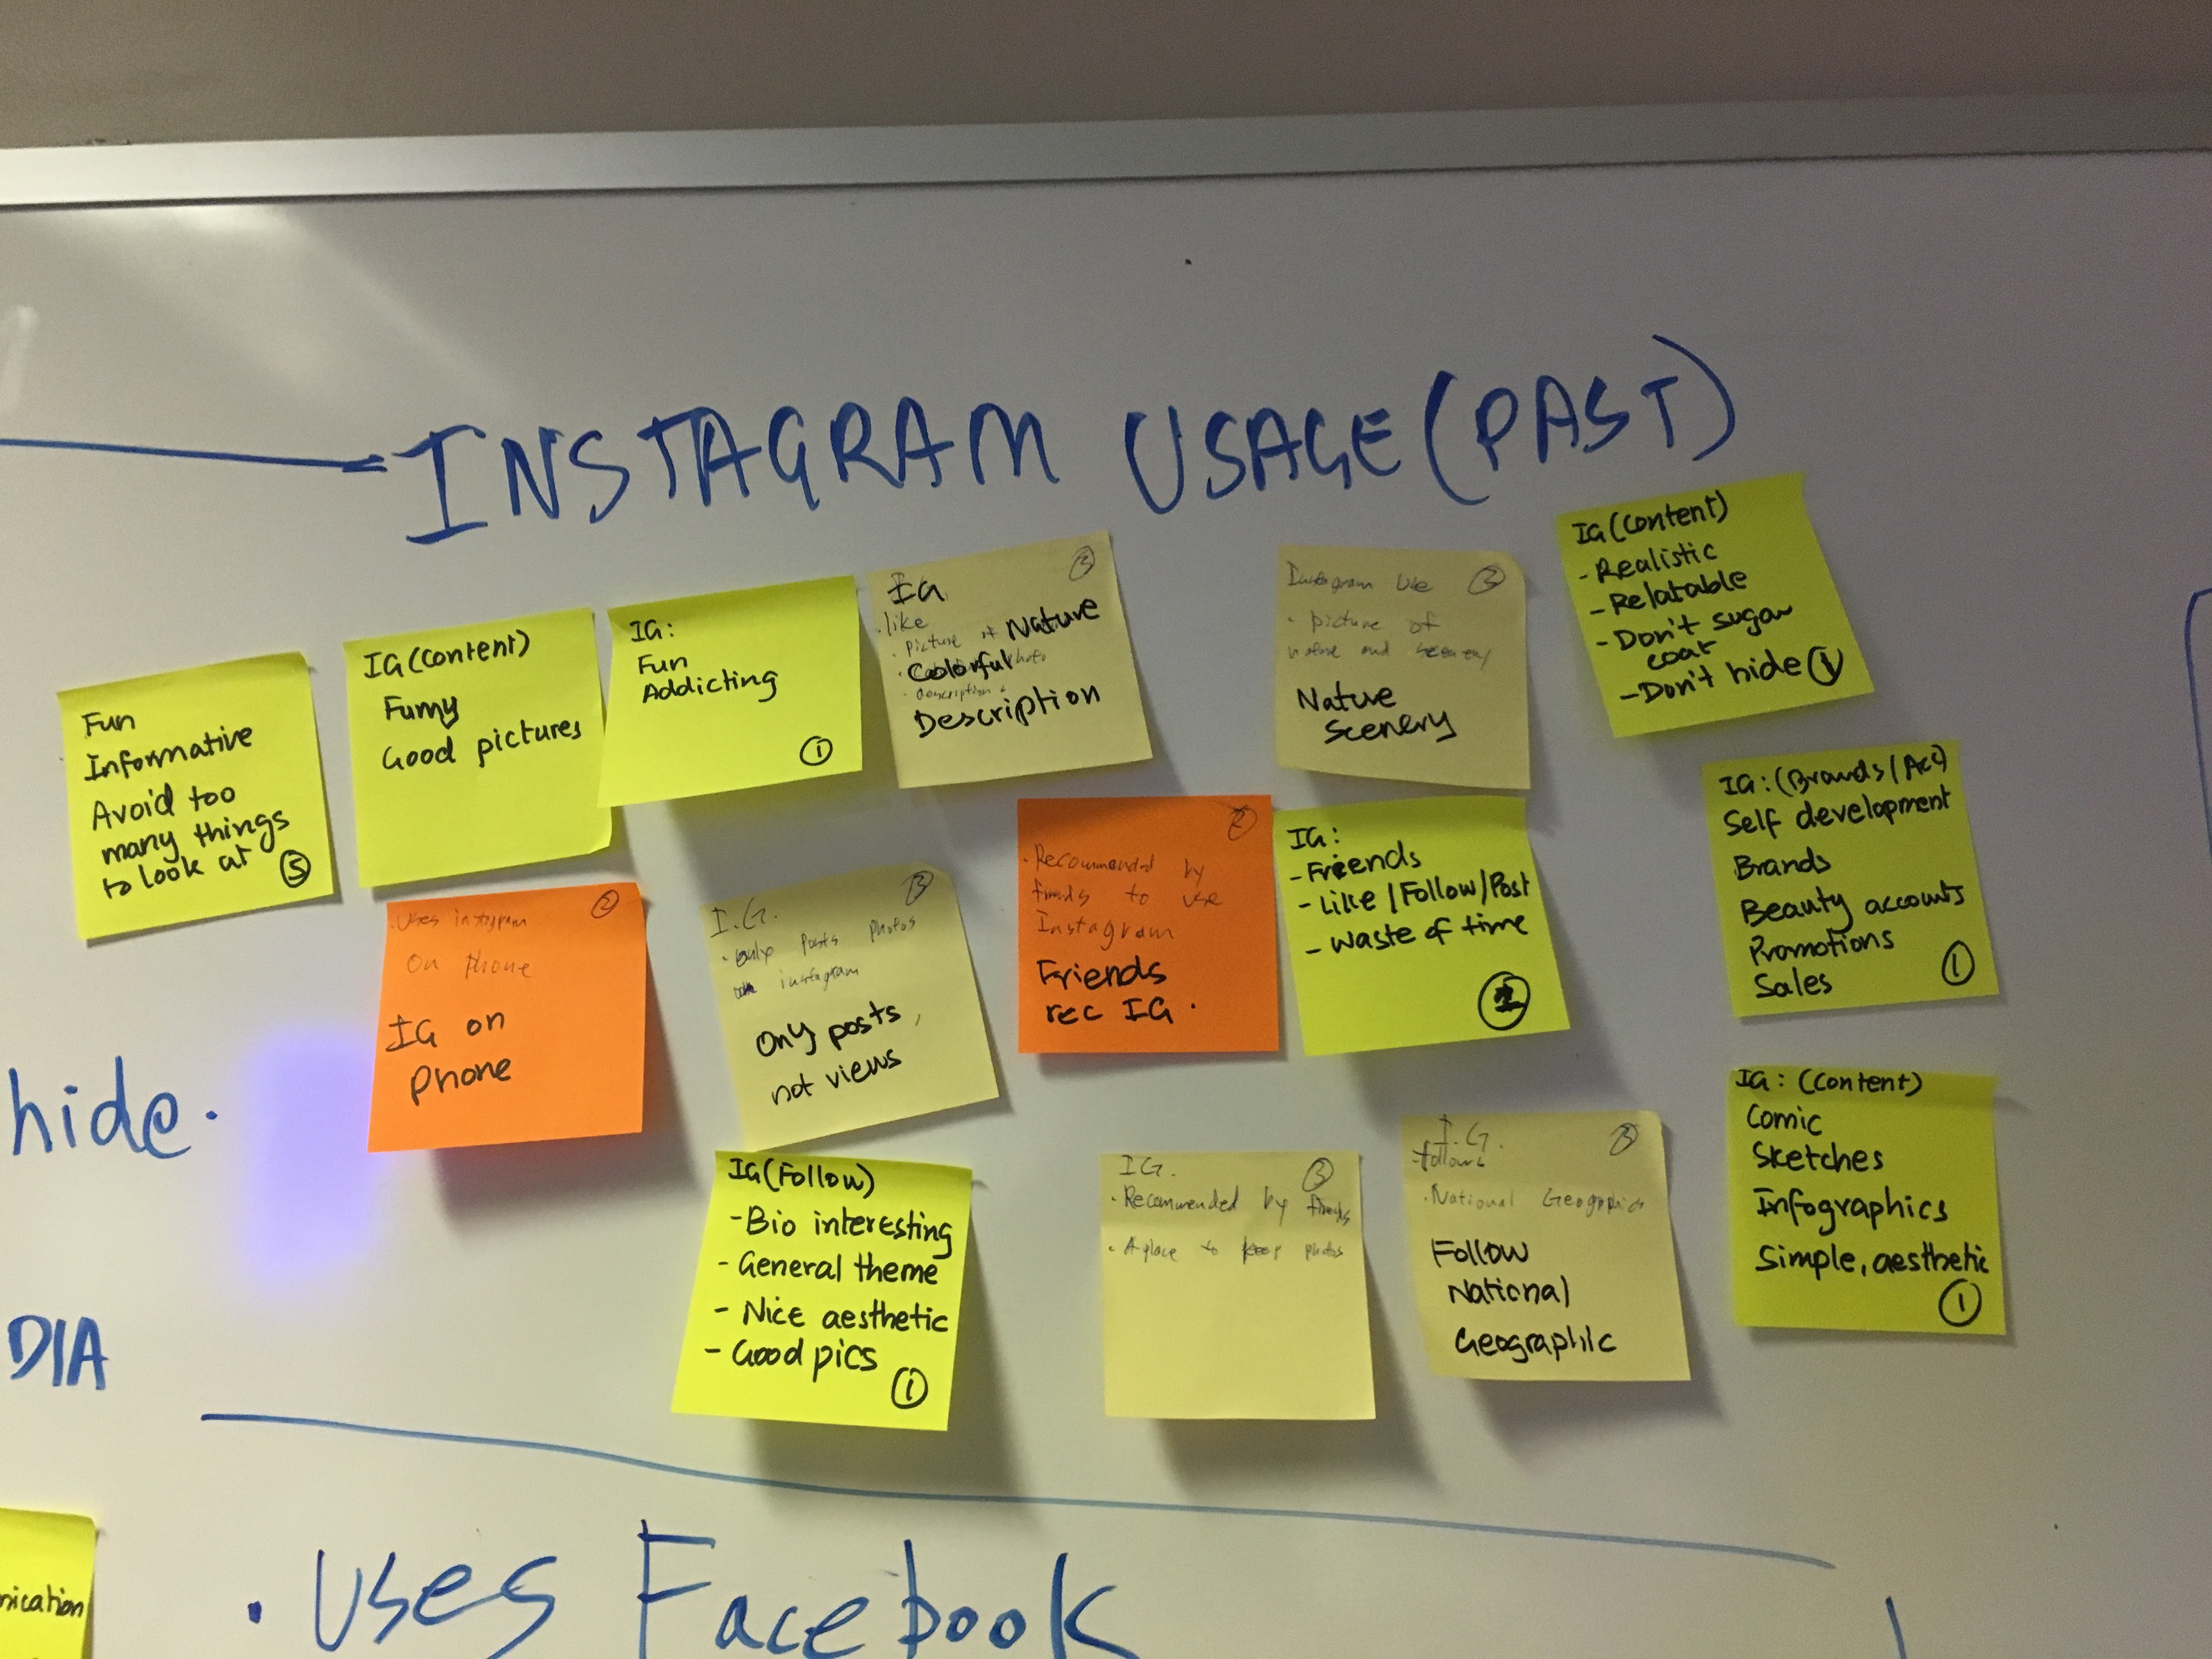 INSTAGRAM USAGE (PAST)
Fun
Informative
Avoid too
many things
to look at
5
IG (Content)
Funny
Good pictures
IG:
Fun
Addicting
1
IG
3
· like
· picture of Nature
· Colorful photo
· description
Description
Instagram Use
3
· picture of
nature and scenery
Nature
Scenery
IG (Content)
- Realistic
- Relatable
- Don't sugar
coat
- Don't hide
1
· Uses instagram
2
on phone
IG on
phone
I.G.
3
· only posts photos
instagram
Only posts,
not views
2
· Recommended by
friends to use
Instagram
Friends
rec IG.
IG:
- Friends
- Like / Follow / Post
- Waste of time
IG: (Brands / Acc)
Self development
Brands
Beauty accounts
Promotions
Sales
1
IG (Follow)
- Bio interesting
- General theme
- Nice aesthetic
- Good pics
1
IG.
3
· Recommended by friends
· A place to keep photos
I.G.
3
- follows
· National Geographics
Follow
National
Geographic
IG: (Content)
Comic
Sketches
Infographics
Simple, aesthetic
1
hide.
DIA
nication
· Uses Facebook